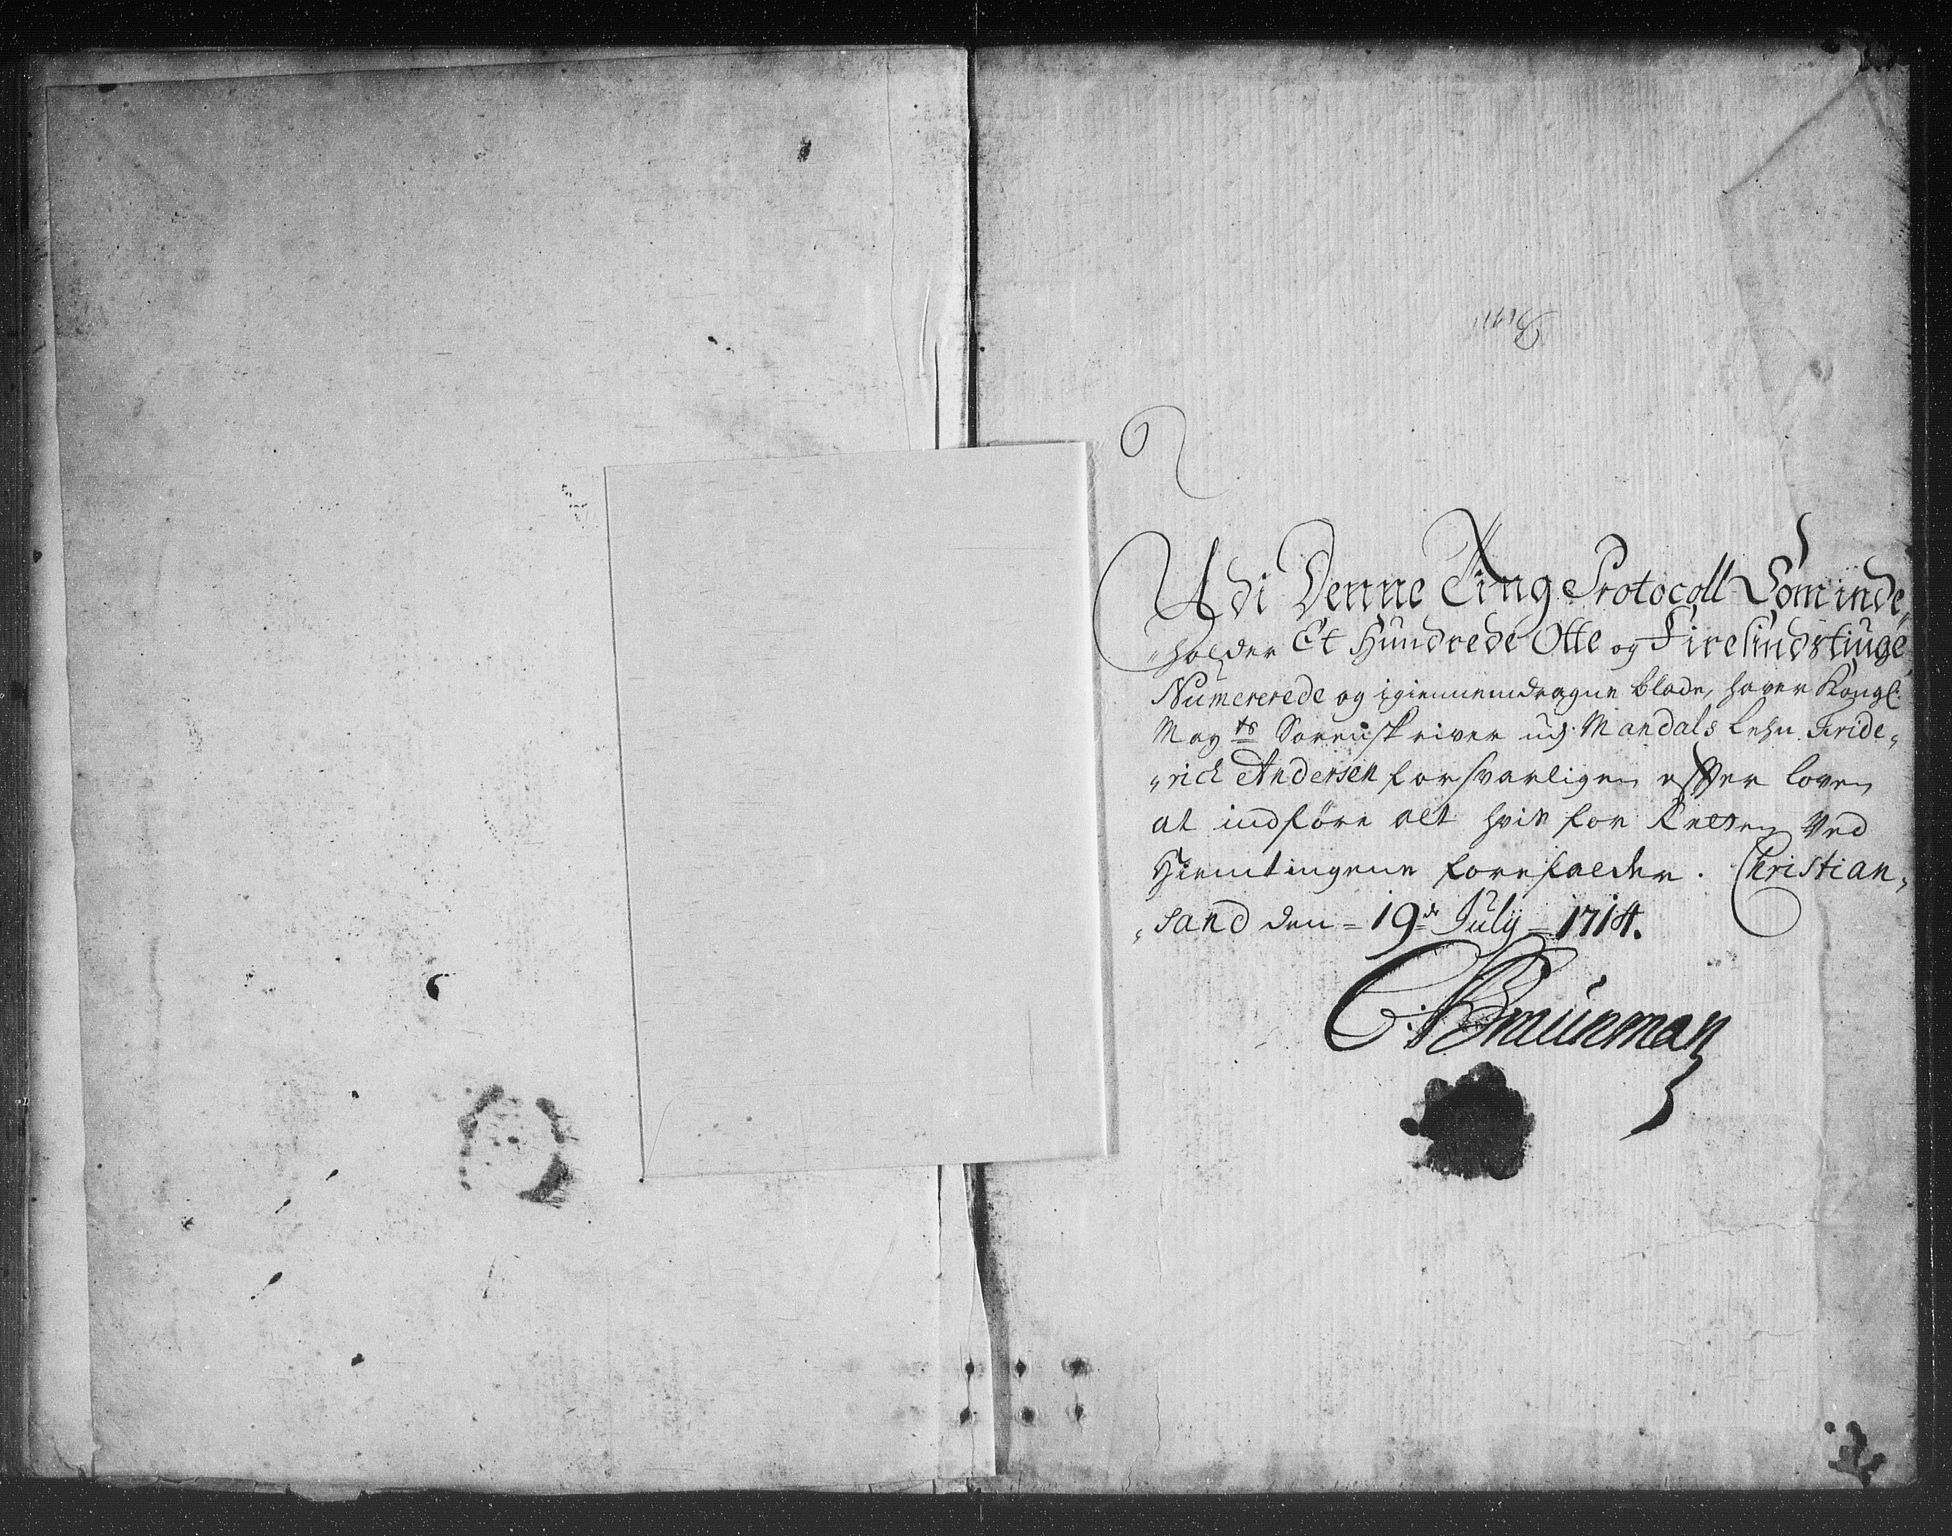 Udi Denne Ting Protocoll Som inde,
,holder Et Hundrede Otte og Firesindstiuge
Numererede og igiennemdragne blade, haver Kongl:
May ts Sorenskriver udj Mandals Lehn Fride,
,rich Andersen forsvarligen efter loven
at indføre alt hvis for Retten Ved
Hiemtingene forefalder. Christian,
,sand den = 19 de July = 1714.